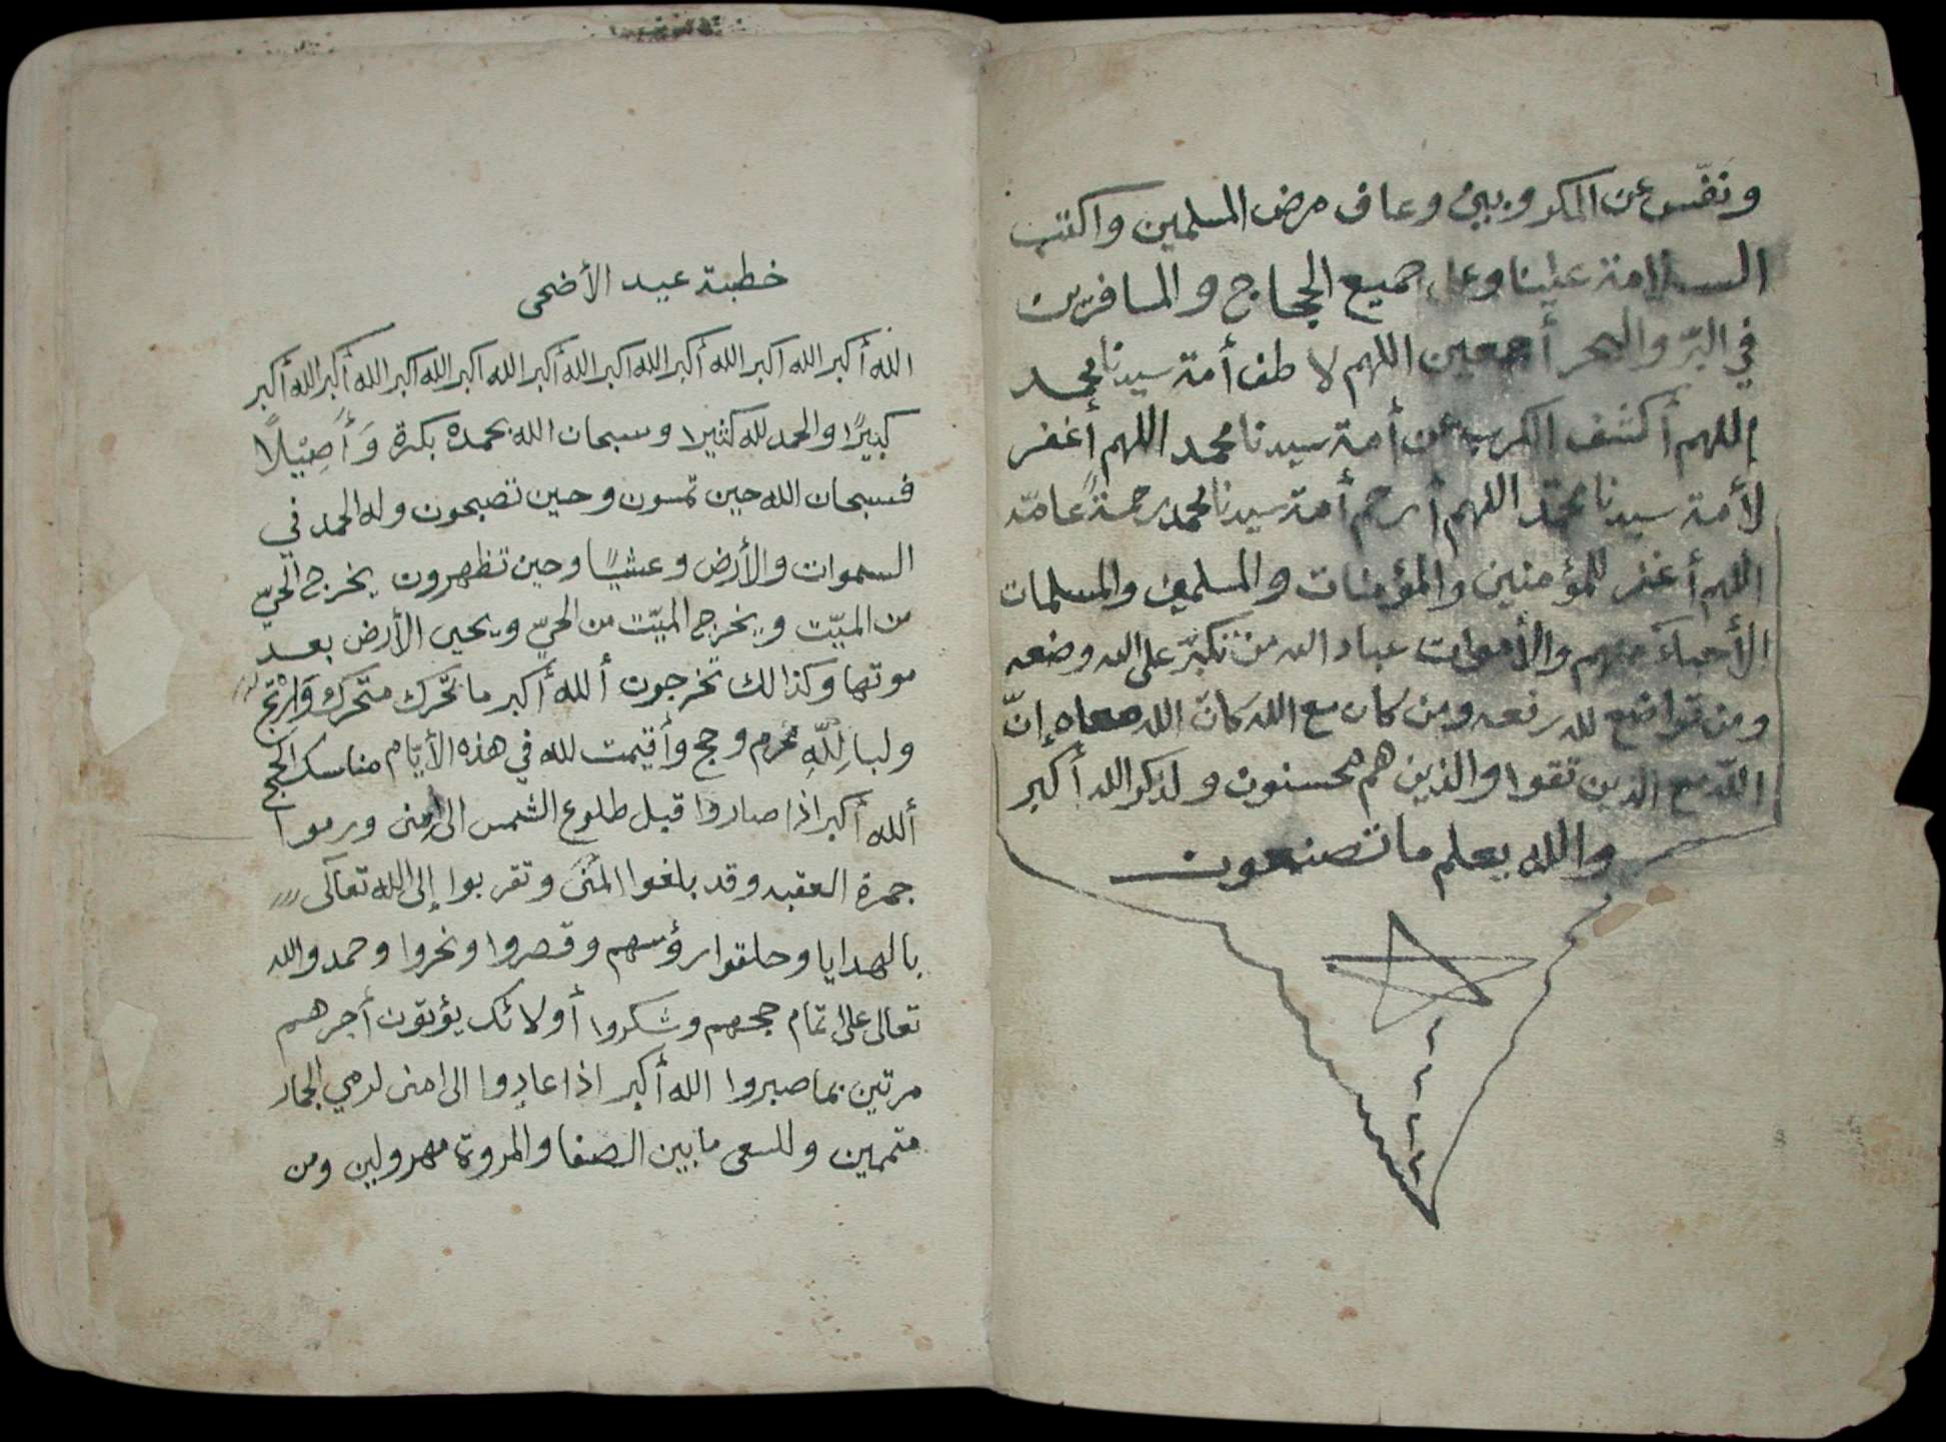 ونفّس عن المكروبين وعاف مرض المسلمين واكتب
السلامة علينا وعلى جميع الحجاج والمسافرين
في البرّ والبحر أجمعين اللهم لاطف أمة سيدنا محمد
اللهم أكشف الكرب عن أمة سيدنا محمد اللهم أغفر
لأمة سيدنا محمّد اللهم أرحم أمة سيدنا محمد رحمةً عامّة
اللهم أغفر للمؤمنين والمؤمنات والمسلمين والمسلمات
الأحيآء منهم والأموات عباد الله من تكبّر على الله وضعه
ومن تواضع لله رفعه ومن كان مع الله كان الله معاه إنّ
اللّه مع الذين تقوا والذين هم محسنون ولذكر الله أكبر
والله يعلم ما تصنعون
خطبة عيد الأضحى
الله أكبر الله اكبر الله أكبر الله اكبر الله أكبر الله اكبر الله اكبر الله أكبر الله أكبر
كبيرًا والحمد لله كثيرا وسبحان الله بحمده بكرة وَأَصِيْلًا
فسبحان الله حين تمسون وحين تصبحون وله الحمد في
السموات والأرض وعشيًا وحين تظهرون يخرج الحيّ
من الميّت ويخرج الميّت من الحيّ ويحيى الأرض بعد
موتها وكذالك تخرجون ألله أكبر ما تحّرك متحرك وَارْتج
ولبا لِلّهِ محُرم وحج وأقيمت لله في هذه الأيّام مناسك الحج
ألله أكبر اذا صاروا قبل طلوع الشمس الى امنى ورموا
جمرة العقبه وقد بلغوا المنَىَ وتقربوا إلى الله تعآلى
بالهدايا وحلقوا رؤسهم وقصروا ونحروا وحمدوا الله
تعالى على اتمام حجهم وشكروا أولائك يؤتون أجرهم
مرتين بما صبروا الله أكبر اذا عادوا الى امنى لرمي الجمار
متممين وللسعى ما بين الصفا والمروة مهرولين ومن